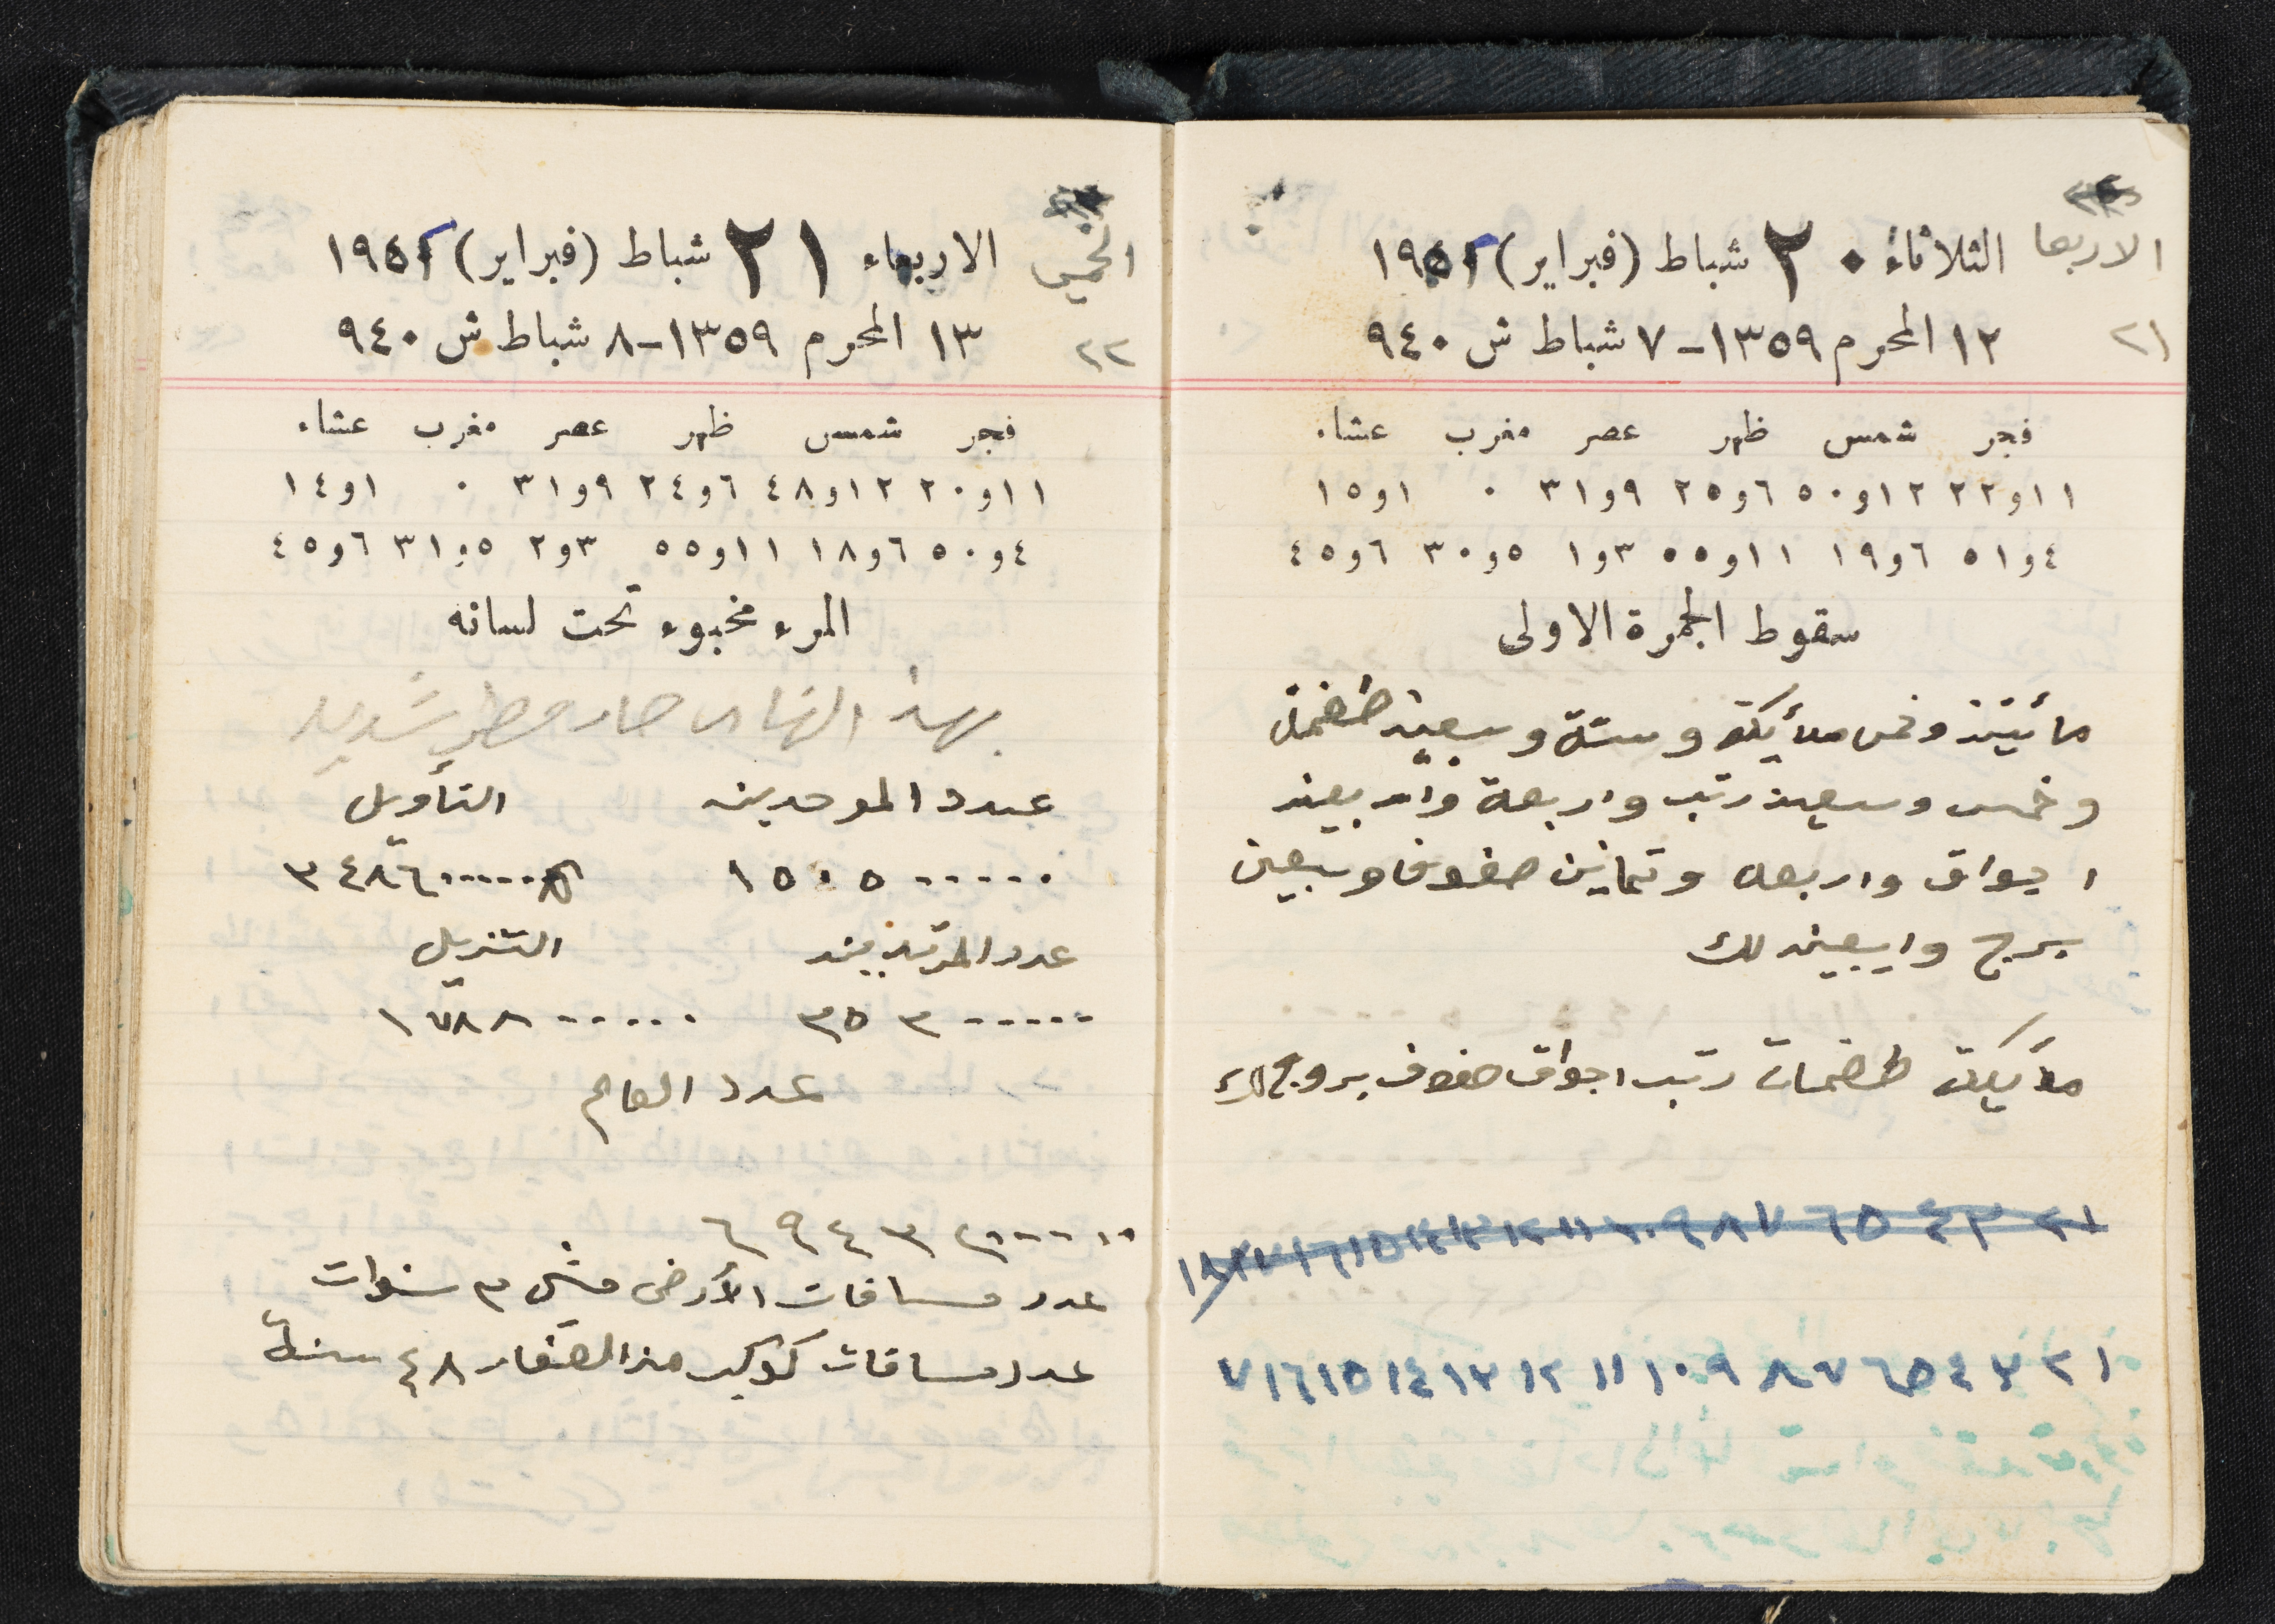 الاربعا الثلاثاء ٢٠ شباط (فبراير) ١٩٥٢
٢١ ١٢ المحرم ١٣٥٩-٧ شباط ش ٩٤٠
فجر شمس ظهر عصر مغرب عشاء
١١و٢٢ ١٢و٥٠ ٦و٢٥ ٩و٣١ ٠ ١و١٥
٤و٥١ ٦و١٩ ١١و٥٥ ٣و١ ٥و٣٠ ٦و٤٥
سقوط الجمرة الاولى
مأيتين وخمس ملأيكة وستة وسبعين طغمة
وخمس وسبعين رتب واربعة واربعين
اجواق واربعه وثمانين صفوف وسبعين
برج وا لك
ملأيكة طغمات رتب اجواق صفوف بروج لك
١ ٢ ٣ ٤ ٥ ٦ ٧ ٨ ٩ ١٠ ١١ ١٢ ١٣ ١٤ ١٥ ١٦ ١٧ ١٨
١ ٢ ٣ ٤ ٥ ٦ ٧ ٨ ٩ ١٠ ١١ ١٢ ١٣ ١٤ ١٥ ١٦ ٧
الخميس الاربعاء ٢١ شباط (فبراير) ١٩٥٢
٢٢ ١٣ المحرم ١٣٥٩-٨ شباط ش ٩٤٠
فجر شمس ظهر عصر مغرب عشاء
١١و٢٠ ١٢و٤٨ ٦و٢٤ ٩و٣١ ٠ ١و١٤
٤و٥٠ ٦و١٨ ١١و٥٥ ٣و٢ ٥و٣١ ٦و٤٥
المرء مخبوء تحت لسانه
بهذا النهار صار مطر شديد
عدد الموحدين التأويل
١٥٠٥٠٠٠٠٠٠
عدد المرتدين التنزيل
٣٥٣٠٠٠٠٠ ١٧٨٨٠٠٠٠٠
عدد العالم
عدد مسافات الأرض مشي ٣ سنوات
عدد مسافات كوكب من الصغار ٤٨ سنة